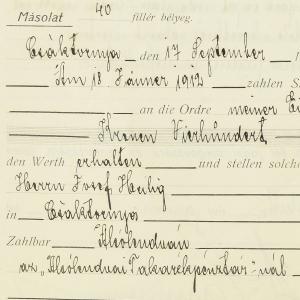 Másolat 40 fillér bélyeg.
Csáktornya den 17 September
Am 18 Jänner 1912 zahlen S
an die Ordre meiner
Kronen Vierhundert
den Werth erhalten und stellen solche
Herrn Josef Heilig
in Csáktornya
Zahlbar Alsólendván
az „Alsólendvai Takarékpénztár"-nál